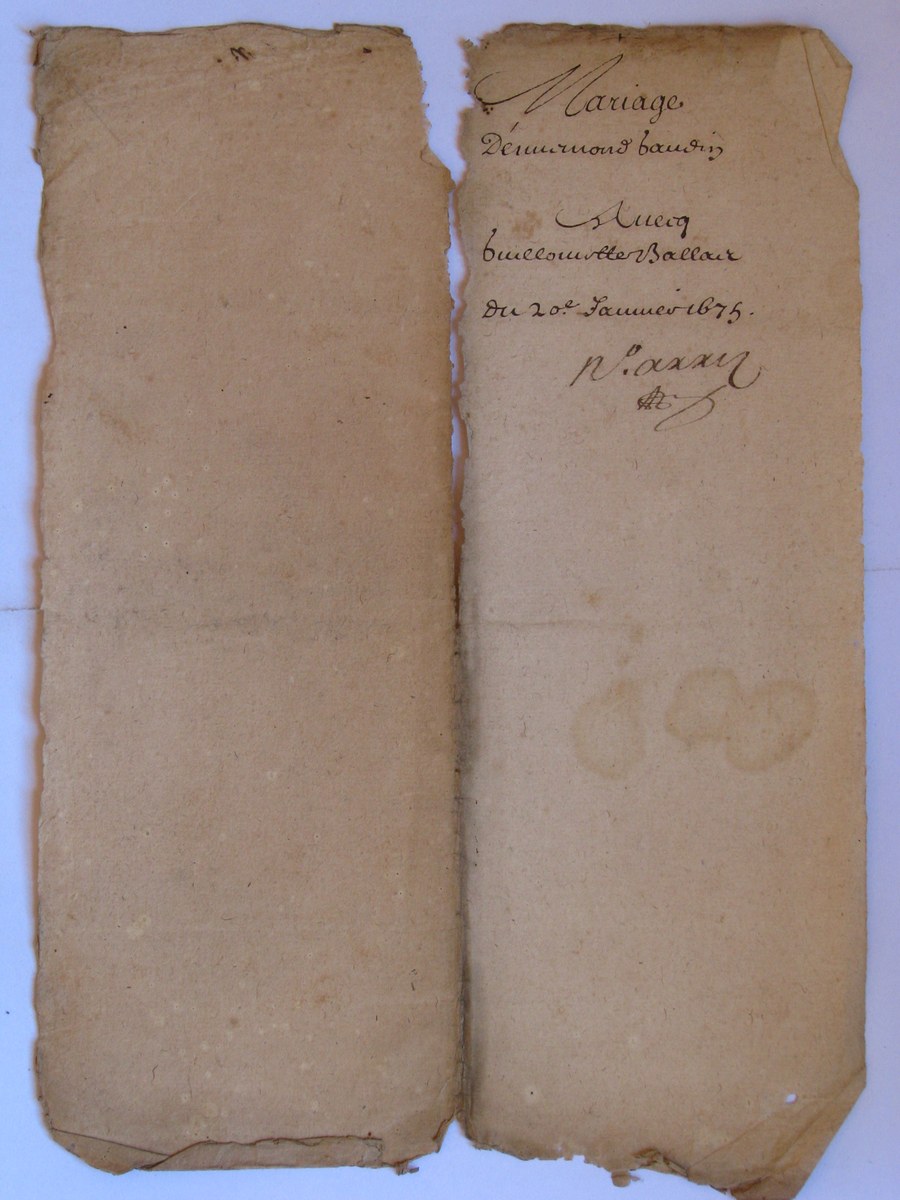 Mariage
D'enurmond baudin
Auecq
Guillomette Ballair
du 20e Januier 1675.